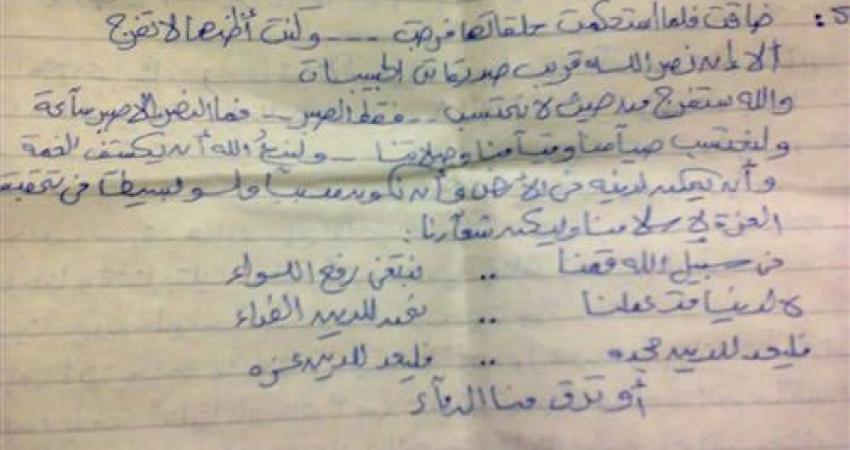 ضاقت فلما استحكمت حلقاتها فرجت --- وكنت أظنها لا تفرج
ألا إن نصر الله قريب صديقاتى الحبيبات
والله ستفرج من حيث لا نحتسب -- فقط الصبر -- فما النصر إلا صبر ساعة
ولنحتسب صيآمنا وقيآمنا وصلاتنا -- ولندع الله أن يكشف الغمة
وأن يمكن لدينه فى الأرض وأن نكون سببا ولو بسيطا فى تحقيق
العزة لإسلامنا وليكن شعآرنا:
فى سبيل الله قمنا .. نبتغى رفع اللواء
لا لدنيا قد عملنا .. نحن للدين الفداء
فليعد للدين مجده .. فليعد للدين عزه
أو ترق منا الدمآء